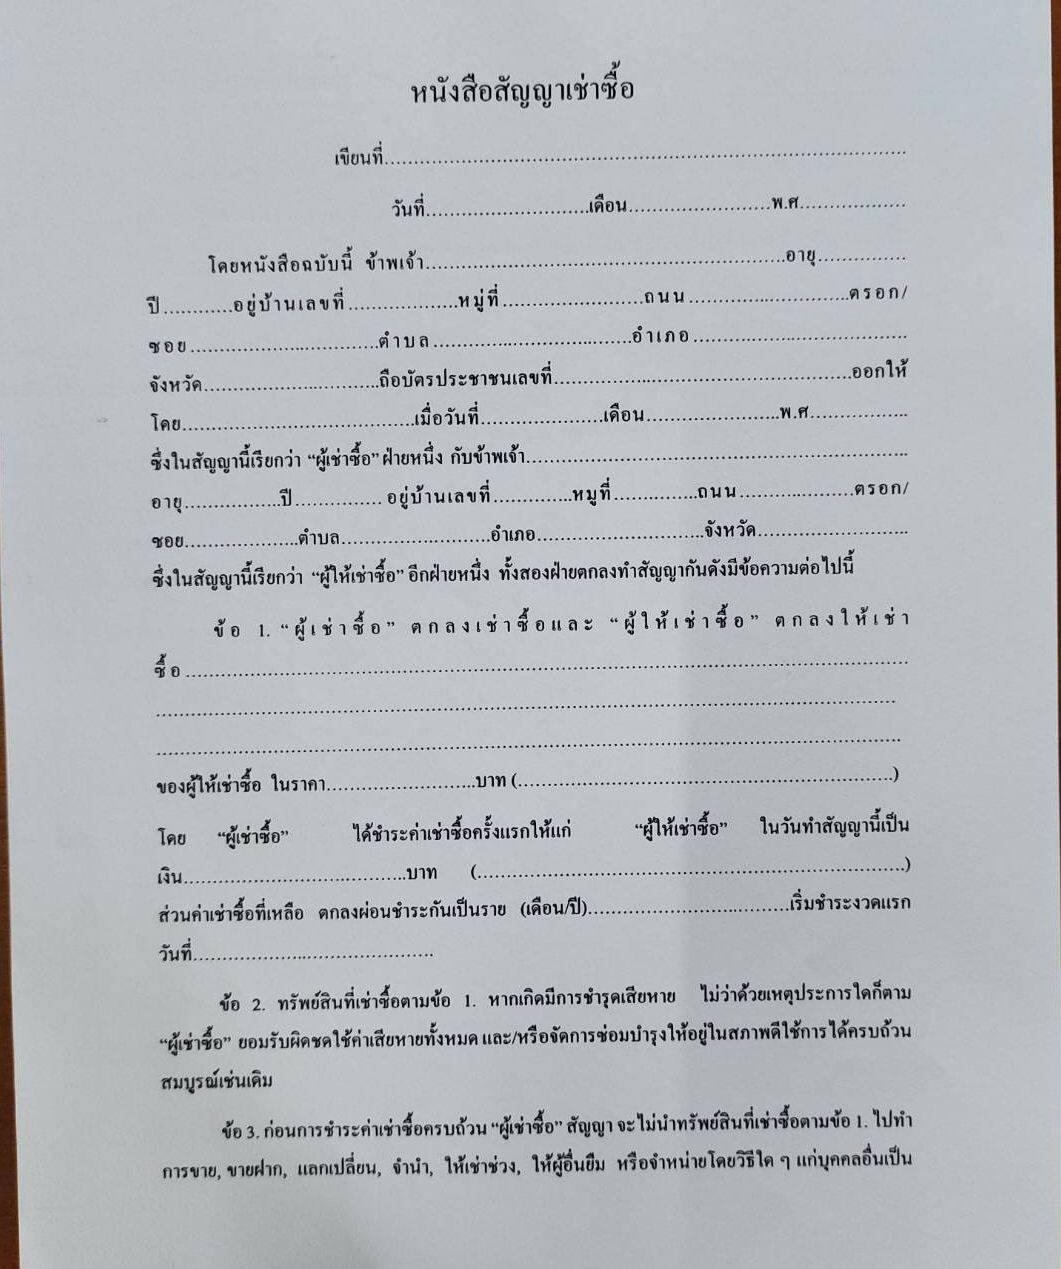 หนังสือสัญญาเช่าซื้อ
เขียนที่..........................................................................................
วันที่............................เดือน.........................พ.ศ..................
โดยหนังสือฉบับนี้ ข้าพเจ้า..............................................................อายุ...............
ปี............อยู่บ้านเลขที่...................หมู่ที่........................ถนน...........................ตรอก/
ซอย................................ตำบล..................................อำเภอ....................................
จังหวัด..............................ถือบัตรประชาชนเลขที่...................................................ออกให้
โดย........................................เมื่อวันที่.....................เดือน.......................พ.ศ.................
ซึ่งในสัญญานี้เรียกว่า “ผู้เช่าซื้อ” ฝ่ายหนึ่ง กับข้าพเจ้า..................................................................
อายุ.................ปี............... อยู่บ้านเลขที่..............หมูที่...............ถนน....................ตรอก/
ซอย....................ตำบล..........................อำเภอ.............................จังหวัด..........................
ซึ่งในสัญญานี้เรียกว่า “ผู้ให้เช่าซื้อ” อีกฝ่ายหนึ่ง ทั้งสองฝ่ายตกลงทำสัญญากันดังมีข้อความต่อไปนี้
ข้อ 1. “ผู้เช่าซื้อ” ตกลงเช่าซื้อและ “ผู้ให้เช่าซื้อ” ตกลงให้เช่า
ซื้อ............................................................................................................................
................................................................................................................................
................................................................................................................................
ของผู้ให้เช่าซื้อ ในราคา..........................บาท (.................................................................)
โดย “ผู้เช่าซื้อ” ได้ชำระค่าเช่าซื้อครั้งแรกให้แก่ “ผู้ให้เช่าซื้อ” ในวันทำสัญญานี้เป็น
เงิน......................................บาท (..........................................................................)
ส่วนค่าเช่าซื้อที่เหลือ ตกลงผ่อนชำระกันเป็นราย (เดือน/ปี)...................................เริ่มชำระงวดแรก
วันที่.........................................
ข้อ 2. ทรัพย์สินที่เช่าซื้อตามข้อ 1. หากเกิดมีการชำรุดเสียหาย ไม่ว่าด้วยเหตุประการใดก็ตาม
“ผู้เช่าซื้อ” ยอมรับผิดชดใช้ค่าเสียหายทั้งหมด และ/หรือจัดการซ่อมบำรุงให้อยู่ในสภาพดีใช้การได้ครบถ้วน
สมบูรณ์เช่นเดิม
ข้อ 3. ก่อนการชำระค่าเช่าซื้อครบถ้วน “ผู้เช่าซื้อ” สัญญา จะไม่นำทรัพย์สินที่เช่าซื้อตามข้อ 1. ไปทำ
การขาย, ขายฝาก, แลกเปลี่ยน, จำนำ, ให้เช่าช่วง, ให้ผู้อื่นยืม หรือจำหน่ายโดยวิธีใด ๆ แก่บุคคลอื่นเป็น